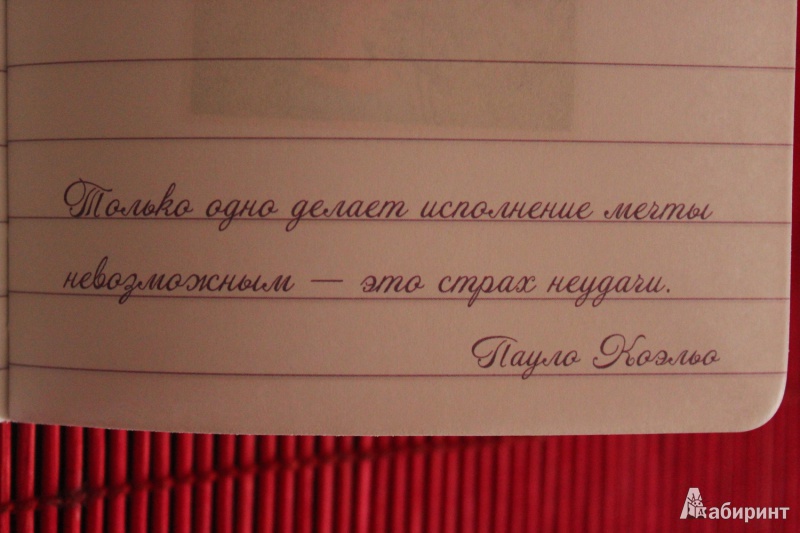 Только одно делает исполнение мечты
невозможным — это страх неудачи.
Пауло Коэльо
Лабиринт